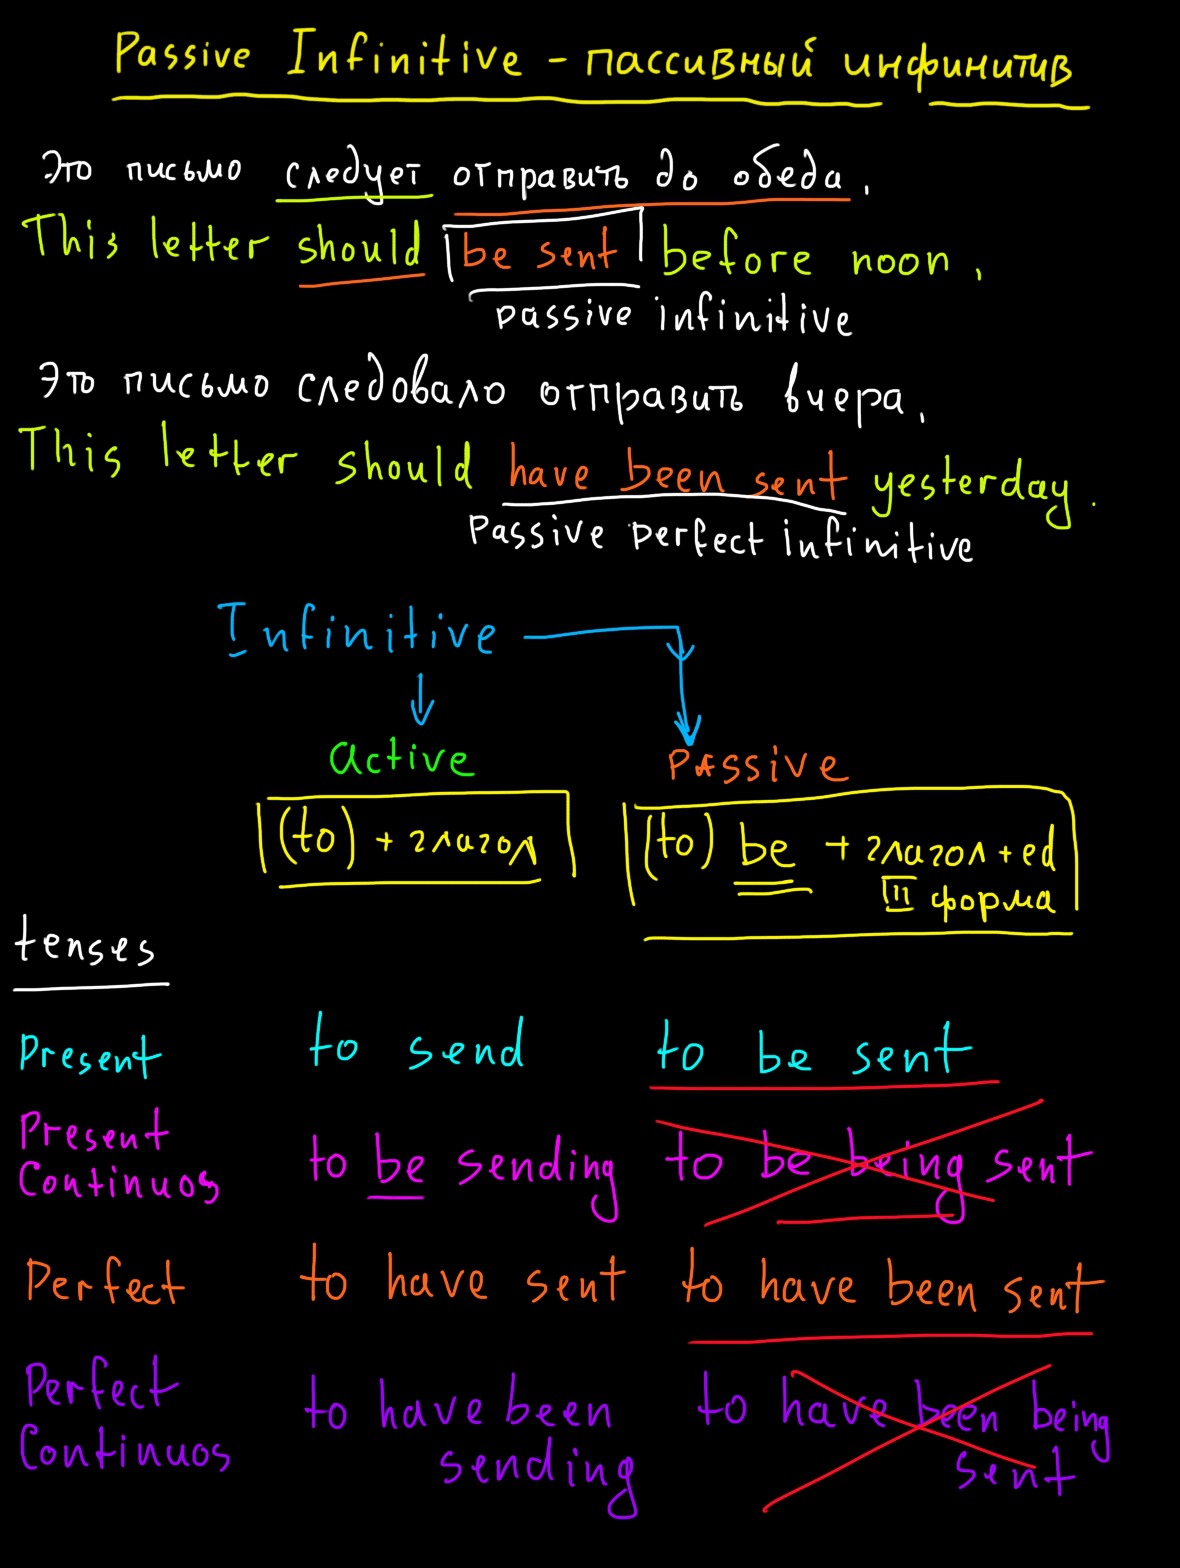 Passive Infinitive - пассивный инфинитив
Это письмо следует отправить до обеда.
This letter should be sent before noon.
passive infinitive
Это письмо следовало отправить вчера.
This letter should have been sent yesterday.
Passive perfect infinitive
Infinitive
active Passive
(to) + глагол (to) be + глагол + ed
III форма
tenses
Present to send to be sent
Present
Continuos to be sending to be being sent
Perfect to have sent to have been sent
Perfect to have been to have been being
Continuos sending sent